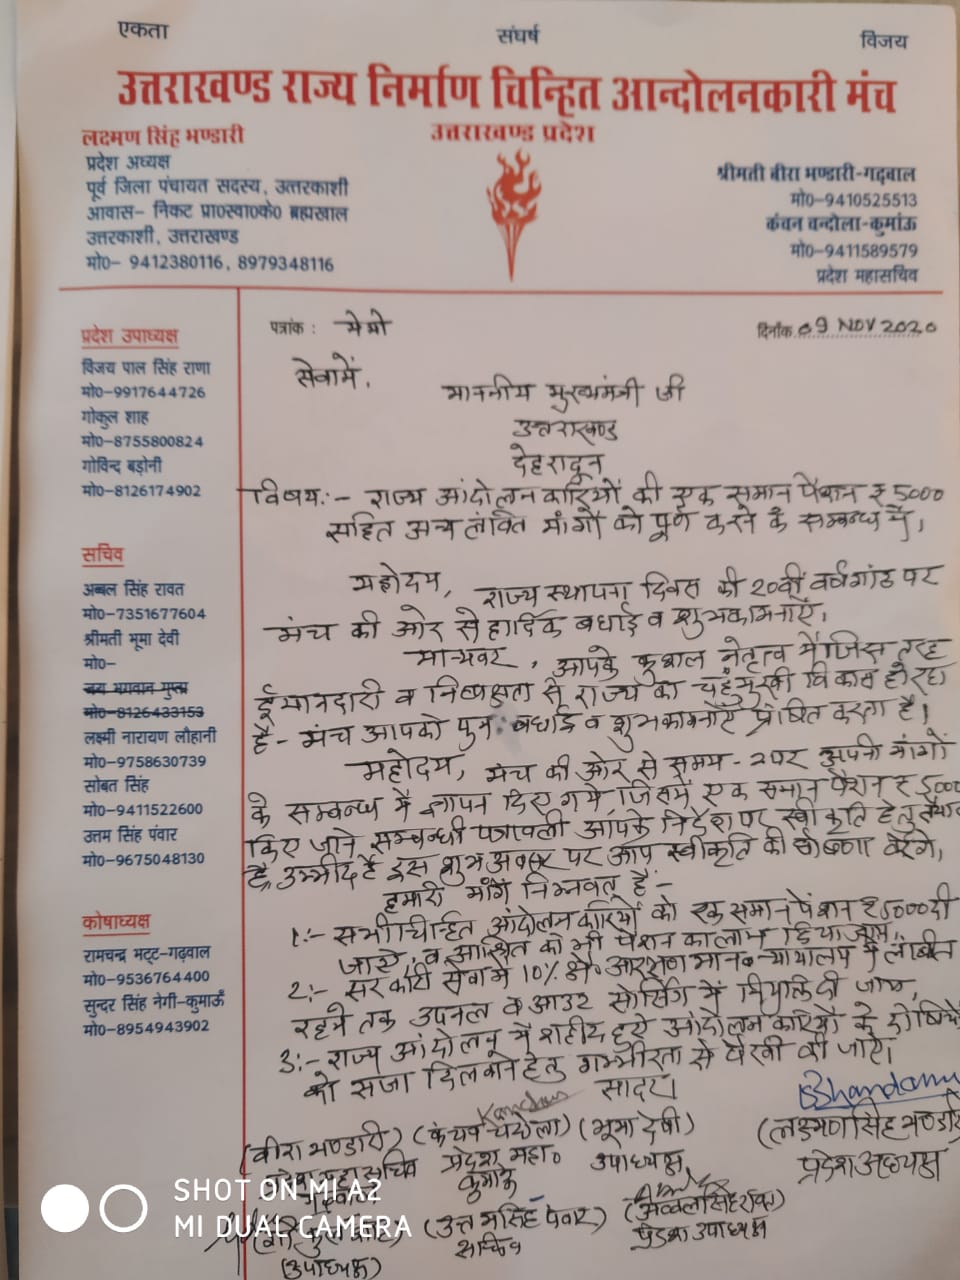 एकता संघर्ष विजय
उत्तराखण्ड राज्य निर्माण चिन्हित आन्दोलनकारी मंच
उत्तराखण्ड प्रदेश
लक्ष्मण सिंह भण्डारी
प्रदेश अध्यक्ष
पूर्व जिला पंचायत सदस्य, उत्तरकाशी
आवास– निकट प्रा०स्वा०के० ब्रह्मखाल
उत्तरकाशी, उत्तराखण्ड
मो०– 9412380116, 8979348116
श्रीमती बीरा भण्डारी-गढ़वाल
मो०–9410525513
कंचन चन्दोला-कुमांऊ
मो०–9411589579
प्रदेश महासचिव
प्रदेश उपाध्यक्ष
विजय पाल सिंह राणा
मो०–9917644726
गोकुल शाह
मो०–8755800824
गोविन्द बड़ोनी
मो०–8126174902
सचिव
अब्बल सिंह रावत
मो०–7351677604
श्रीमती भूमा देवी
मो०–
जय भगवान गुप्ता
मो०–8126433153
लक्ष्मी नारायण लौहानी
मो०–9758630739
सोबत सिंह
मो०–9411522600
उत्तम सिंह पंवार
मो०–9675048130
कोषाध्यक्ष
रामचन्द्र भट्ट-गढ़वाल
मो०–9536764400
सुन्दर सिंह नेगी-कुमाऊँ
मो०–8954943902
पत्रांक : मेमो दिनाँक 09 NOV 2020
सेवामें,
माननीय मुख्यमंत्री जी
उत्तराखण्ड
देहरादून
विषय:- राज्य आंदोलनकारियों की एक समान पेंशन ₹ 5000
सहित अन्य लंबित मांगों को पूर्ण करने के सम्बन्ध में।
महोदय, राज्य स्थापना दिवस की 20वीं वर्षगांठ पर
मंच की ओर से हार्दिक बधाई व शुभकामनाएँ,
मान्यवर, आपके कुशल नेतृत्व में जिस तरह
ईमानदारी व निष्पक्षता से राज्य का चहुंमुखी विकास हो रहा
है- मंच आपको पुनः बधाई व शुभकामनाएँ प्रेषित करता है।
महोदय, मंच की ओर से समय-समय पर अपनी मांगों
के सम्बन्ध में ज्ञापन दिए गये, जिसमें एक समान पेंशन ₹ 5000
किए जाने सम्बन्धी पत्रावली आपके निर्देश पर स्वीकृति हेतु तैयार
है, उम्मीद है इस शुभ अवसर पर आप स्वीकृति की घोषणा करेंगे,
हमारी मांगे निम्नवत् हैं-
1:- सभी चिन्हित आंदोलनकारियों को एक समान पेंशन ₹ 5000 दी
जाए, व आश्रित को भी पेंशन का लाभ दिया जाए,
2:- सरकारी सेवा में 10% क्षै० आरक्षण मान० न्यायालय में लंबित
रहने तक उपनल व आउट सोर्सिंग में नियुक्ति दी जाय,
3:- राज्य आंदोलन में शहीद हुए आंदोलनकारियों के दोषियों
को सजा दिलवाने हेतु गम्भीरता से पैरवी की जाए।
सादर।
Kanchan
Bhandari
(वीरा भण्डारी) (कंचन चंदोला) (भूमा देवी) (लक्ष्मण सिंह भण्डारी)
प्रदेश महासचिव प्रदेश महा० उपाध्यक्ष प्रदेश अध्यक्ष
कुमाऊँ
(उत्तम सिंह पंवार) (अव्वल सिंह रावत)
सचिव प्रदेश उपाध्यक्ष
(उपाध्यक्ष)
SHOT ON MI A2
MI DUAL CAMERA